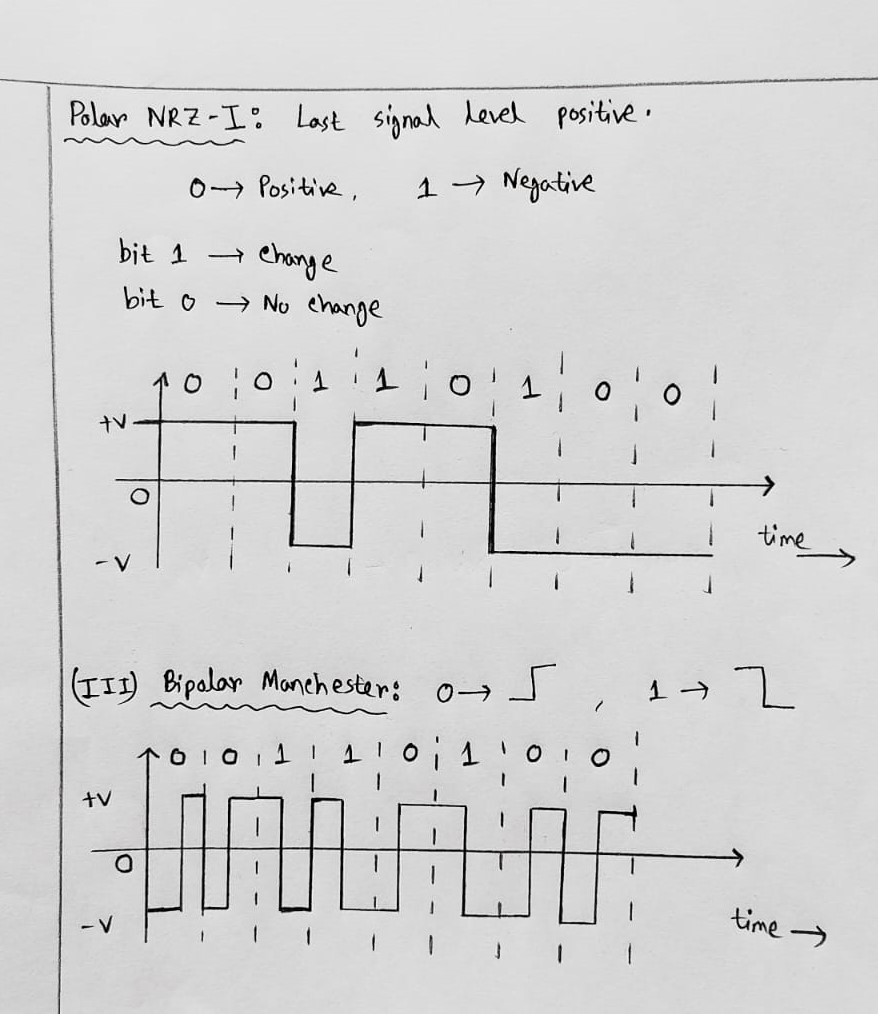 Polar NRZ-I: Last signal level positive.
0 → Positive, 1 → Negative
bit 1 → change
bit 0 → No change
0 0 1 1 0 1 0 0
+V
0
-V
time →
(III) Bipolar Manchester: 0 → , 1 →
0 0 1 1 0 1 0 0
+V
0
-V
time →